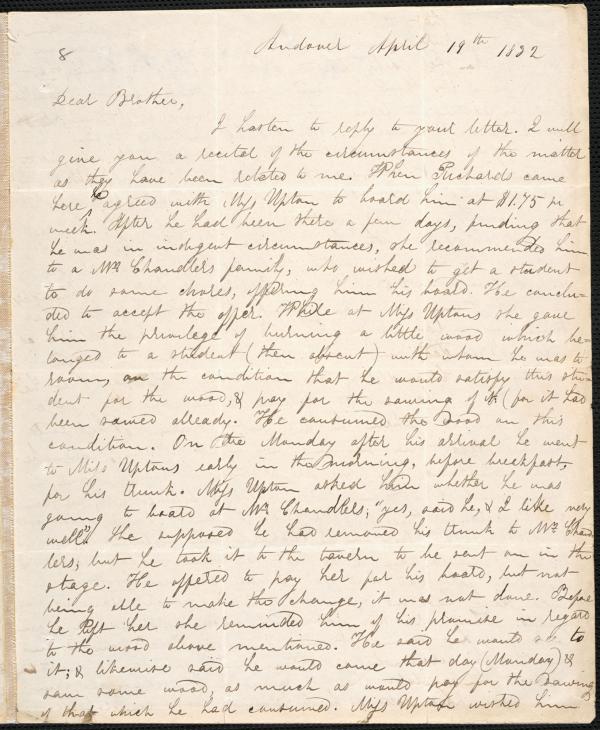 8
Andover April 19th 1832
Dear Brother,
I hasten to reply to your letter. I will
give you a recital of the circumstances of the matter
as they have been related to me. When Richards came
here he agreed with Miss Upton to board him at $1.75 pr
week. After he had been there a few days, finding that
he was in indigent circumstances, she recommended him
to a Mr Chandlers family, who wished to get a student
to do some chores, offering him his board. He conclu-
ded to accept the offer. While at Miss Uptons she gave
him the privilege of burning a little wood which be-
longed to a student (then absent) with whom he was to
room, on the condition that he would satisfy this stu-
dent for the wood, & pay for the sawing of it (for it had
been sawed already. He consumed the wood on this
condition. On the Monday after his arrival he went
to Miss Uptons early in the morning, before breakfast,
for his trunk. Miss Upton asked him whether he was
going to board at Mr Chandlers; "yes, said he, & I like very
well." She supposed he had removed his trunk to Mr Chand
lers; but he took it to the tavern to be sent on in the
stage. He offered to pay her for his board, but not
being able to make the change, it was not done. Before
he left her she reminded him of his promise in regard
to the wood above mentioned. He said he would see to
it; & likewise said he would come that day (Monday) &
saw some wood, as much as would pay for the sawing
of that which he had consumed. Miss Upton wished him